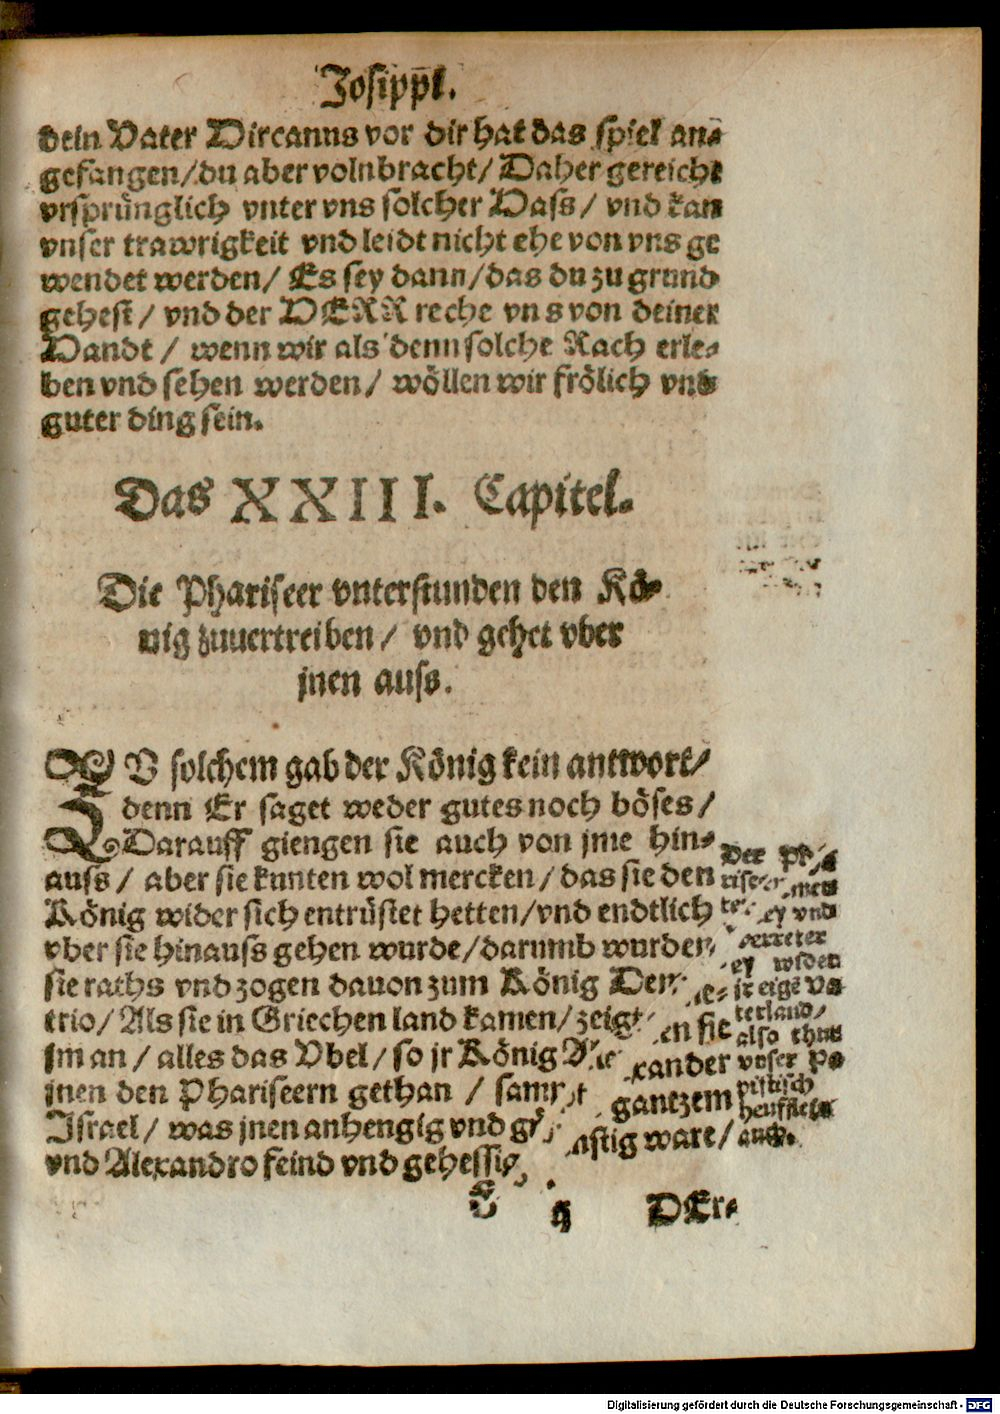 Josippi.
dein Vater Hircanns vor dir hat das spiel an⸗
gefangen/du aber volnbracht/ Daher gereicht
vrsprünglich vnter vns solcher Hass/ vnd kan
vnser trawrigkeit vnd leidt nicht ehe von vns ge
wendet werden/ Es sey dann/das du zu grund
gehest/ vnd der HERR reche vns von deiner
Handt/ wenn wir als denn solche Rach erle⸗
ben vnd sehen werden/ wöllen wir frölich vnd
guter ding sein.
Das XXIII. Capitel.
Die Phariseer vnterstunden den Kö⸗
nig zuuertreiben/ vnd gehet vber
jnen auss.
ZV solchem gab der König kein antwort/
denn Er saget weder gutes noch böses/
Darauff giengen sie auch von jme hin⸗
auss/ aber sie kunten wol mercken/das sie den
König wider sich entrüstet hetten/vnd endtlich
vber sie hinauss gehen wurde/darumb wurden
sie raths vnd zogen dauon zum König Deme⸗
trio/ Als sie in Griechen land kamen/zeigten sie
jm an/ alles das Vbel/ so jr König Alexander
jnen den Phariseern gethan/ sampt gantzem
Israel/ was jnen anhengig vnd günstig ware/
vnd Alexandro feind vnd gehessig
Der
vnd
verreter
ey widen
jr eigē Va
terland/
also thun
vnser Pa
pistisch
heuffleln
auch.
H
DEr⸗
Digitalisierung gefördert durch die Deutsche Forschungsgemeinschaft - DFG